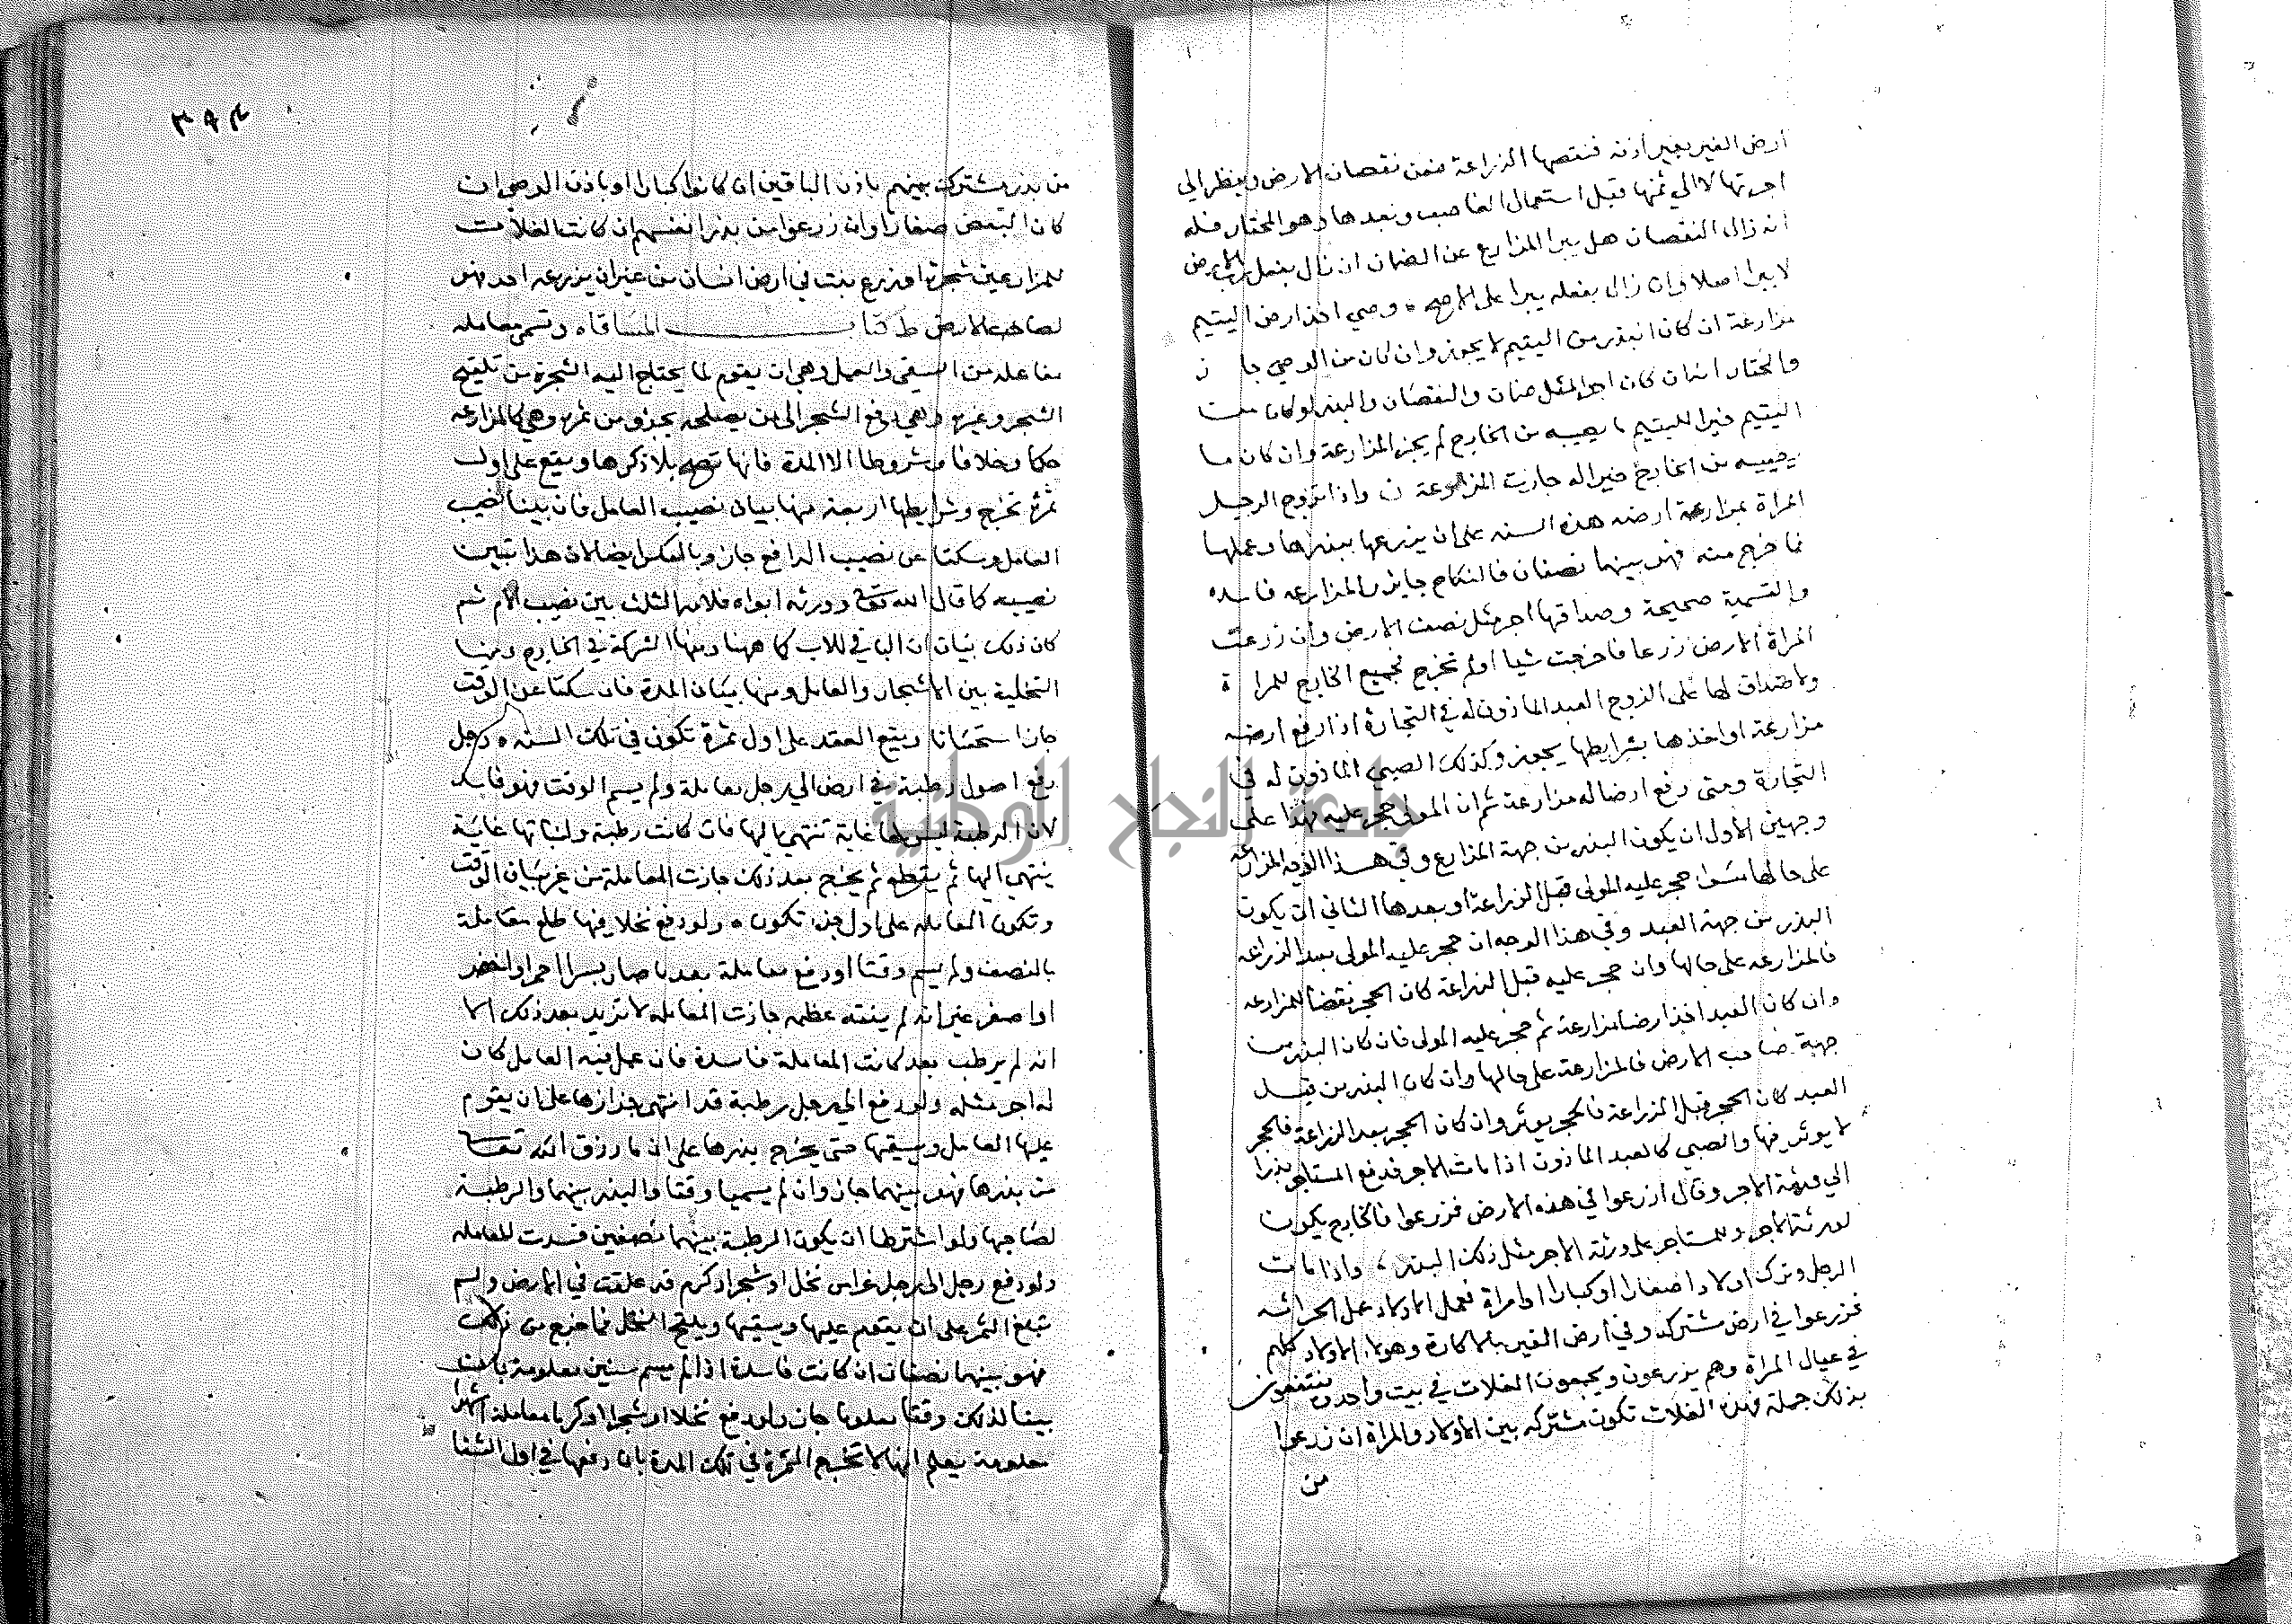 أرض الغير بغير اذنه فنقصها الزراعة ضمن نقصان الارض وينظر الى
اجرتها لا الي ثمنها قبل استعمال الغاصب وبعدها وهو المختار فله
انه زال النقصان هل يبرا المزارع عن الضمان ان زال بفعل رب الارض
لا يبرا اصلا وان زال بفعله يبرا على الاصح ه وصي اخذ ارض اليتيم
مزارعة ان كان البذر من اليتيم لا يجوز وان كان من الوصي جاز
والمختار انه ان كان اجر المثل ضمان والنقصان والبذر لو كان من
اليتيم خيرا لليتيم ما يصيبه من الخارج لم يجز المزارعة وان كان ما
يصيبه من الخارج خيرا له جازت المزارعة ن واذا تزوج الرجل
المراة بمزارعة ارضه هذه السنه على ان يزرعها ببذرها وعملها
فما خرج منه فهو بينهما نصفان فالنكاح جايز والمزارعه فاسده
والتسمية صحيحة وصداقها اجر مثل نصف الارض وان زرعت
المراة الارض زرعا فاخرجت شيا او لم تخرج فجميع الخارج للمراة
ولا صداق لها على الزوج العبد الماذون له في التجارة اذا دفع ارضه
مزارعة او اخذها بشرايطها يجوز وكذلك الصبي الماذون له في
التجارة ومتى دفع ارضا له مزارعة ثم ان المولى حجر عليه فهذا على
وجهين الاول ان يكون البذر من جهة المزارع وفي هذا الوجه المزارعة
على حالها سوا حجر عليه المولى قبل الزراعة او بعدها الثاني ان يكون
البذر من جهة العبد وفي هذا الوجه ان حجر عليه المولى بعد الزراعه
فالمزارعه على حالها وان حجر عليه قبل الزراعة كان الحجر نقضا للمزارعه
وان كان العبد اخذ ارضا مزارعة ثم حجر عليه المولى فان كان البذر من
جهة صاحب الارض فالمزارعة على حالها وان كان البذر من قبل
العبد كان الحجر قبل الزراعة فالحجر يوثر وان كان الحجر بعد الزراعة فالحجر
لا يوثر فيها والصبي كالعبد الماذون اذا مات الاجر فدفع المستاجر بذرا
الي ورثة الاجر وقال ازرعوا في هذه الارض فزرعوا فالخارج يكون
لورثة الاجر وللمستاجر على ورثة الاجر مثل ذلك البذر ، واذا مات
الرجل وترك اولادا صغارا او كبارا او امراة فعمل الاولاد عمل الحراثه
فزرعوا في ارض مشتركه وفي ارض الغير بالاكارة وهولاء الاولاد كلهم
في عيال المراة وهم يزرعون ويجمعون الغلات في بيت واحد وينتفعون
بذلك جملة فهذه الغلات تكون مشتركه بين الاولاد والمراة ان زرعوا
من
٣٩٤
من بذر مشترك بينهم باذن الباقين ان كانوا كبارا او باذن الوصي ان
كان البعض صغارا وان زرعوا من بذر انفسهم ان كانت الغلات
للمزارعين شجرة او زرع نبت في ارض انسان من غير ان يزرعه احد فهو
لصاحب الارض ط كتاب المساقاه وتسمى معامله
مفاعله من السقي والعمل وهي ان يقوم لما يحتاج اليه الشجرة من تلقيح
الشجر وغيره وهي دفع الشجر الى من يصلحه بجزو من ثمره وهي كالمزارعه
حكما وخلافا وشروطا الا المدة فانها تصح بلا ذكرها ويقع على اول
ثمرة تخرج وشرايطها اربعة منها بيان نصيب العامل فان بينا نصيب
العامل وسكتا عن نصيب الدافع جاز وبالعكس ايضا لان هذا تبيين
نصيبه كما قال الله تعالى وورثه ابواه فلامه الثلث بين نصيب الام ثم
كان ذلك بيان ان الباقي للاب كما ههنا ومنها الشركة في الخارج ومنها
التخلية بين الاشجار والعامل ومنها بيان المدة فان سكتا عن الوقت
جاز استحسانا ويقع العقد على اول ثمرة تكون في تلك السنه ه رجل
دفع اصول رطبة في ارض الي رجل معاملة ولم يسم الوقت فهو فاسد
لان الرطبة ليس لها غاية تنتهي اليها فان كانت رطبة ولنباتها غاية
ينتهي اليها ثم يقطع ثم يخرج بعد ذلك جازت المعاملة من غير بيان الوقت
وتكون المعامله على اول جزة تكون ه ولو دفع نخلا فيها طلع معاملة
بالنصف ولم يسم وقتا او دفع معاملة بعد ما صار بسرا احمر او اخضر
او اصفر غير انه لم ينته عظمه جازت المعامله لا تزيد بعد ذلك الا
انه لم يرطب بعد كانت المعاملة فاسدة فان عمل فيه العامل كان
له اجر مثله ولو دفع الي رجل رطبة قد انتهى جذاذها على ان يقوم
عليها العامل ويسقيها حتى يخرج بذرها على ان ما رزق الله تعالى
من بذرها فهو بينهما جاز وان لم يسميا وقتا والبذر بينهما والرطبة
لصاحبها ولو اشترطا ان يكون الرطبة بينهما نصفين فسدت المعامله
ولو دفع رجل الى رجل غراس نخل او شجر او كرم قد علقت في الارض ولم
تبلغ الثمر على ان يقوم عليها ويسقيها ويلقح النخل فما خرج من ذلك
فهو بينهما نصفان كانت فاسدة اذا لم يسم سنين معلومة فان
بينا لذلك وقتا معلوما جاز ولو دفع نخلا او شجرا او كرما معاملة اشهرا
معلومة يعلم انها لا تخرج الثمرة في تلك المدة بان دفعها في اول الشتا
جامعة النجاح الوطنية